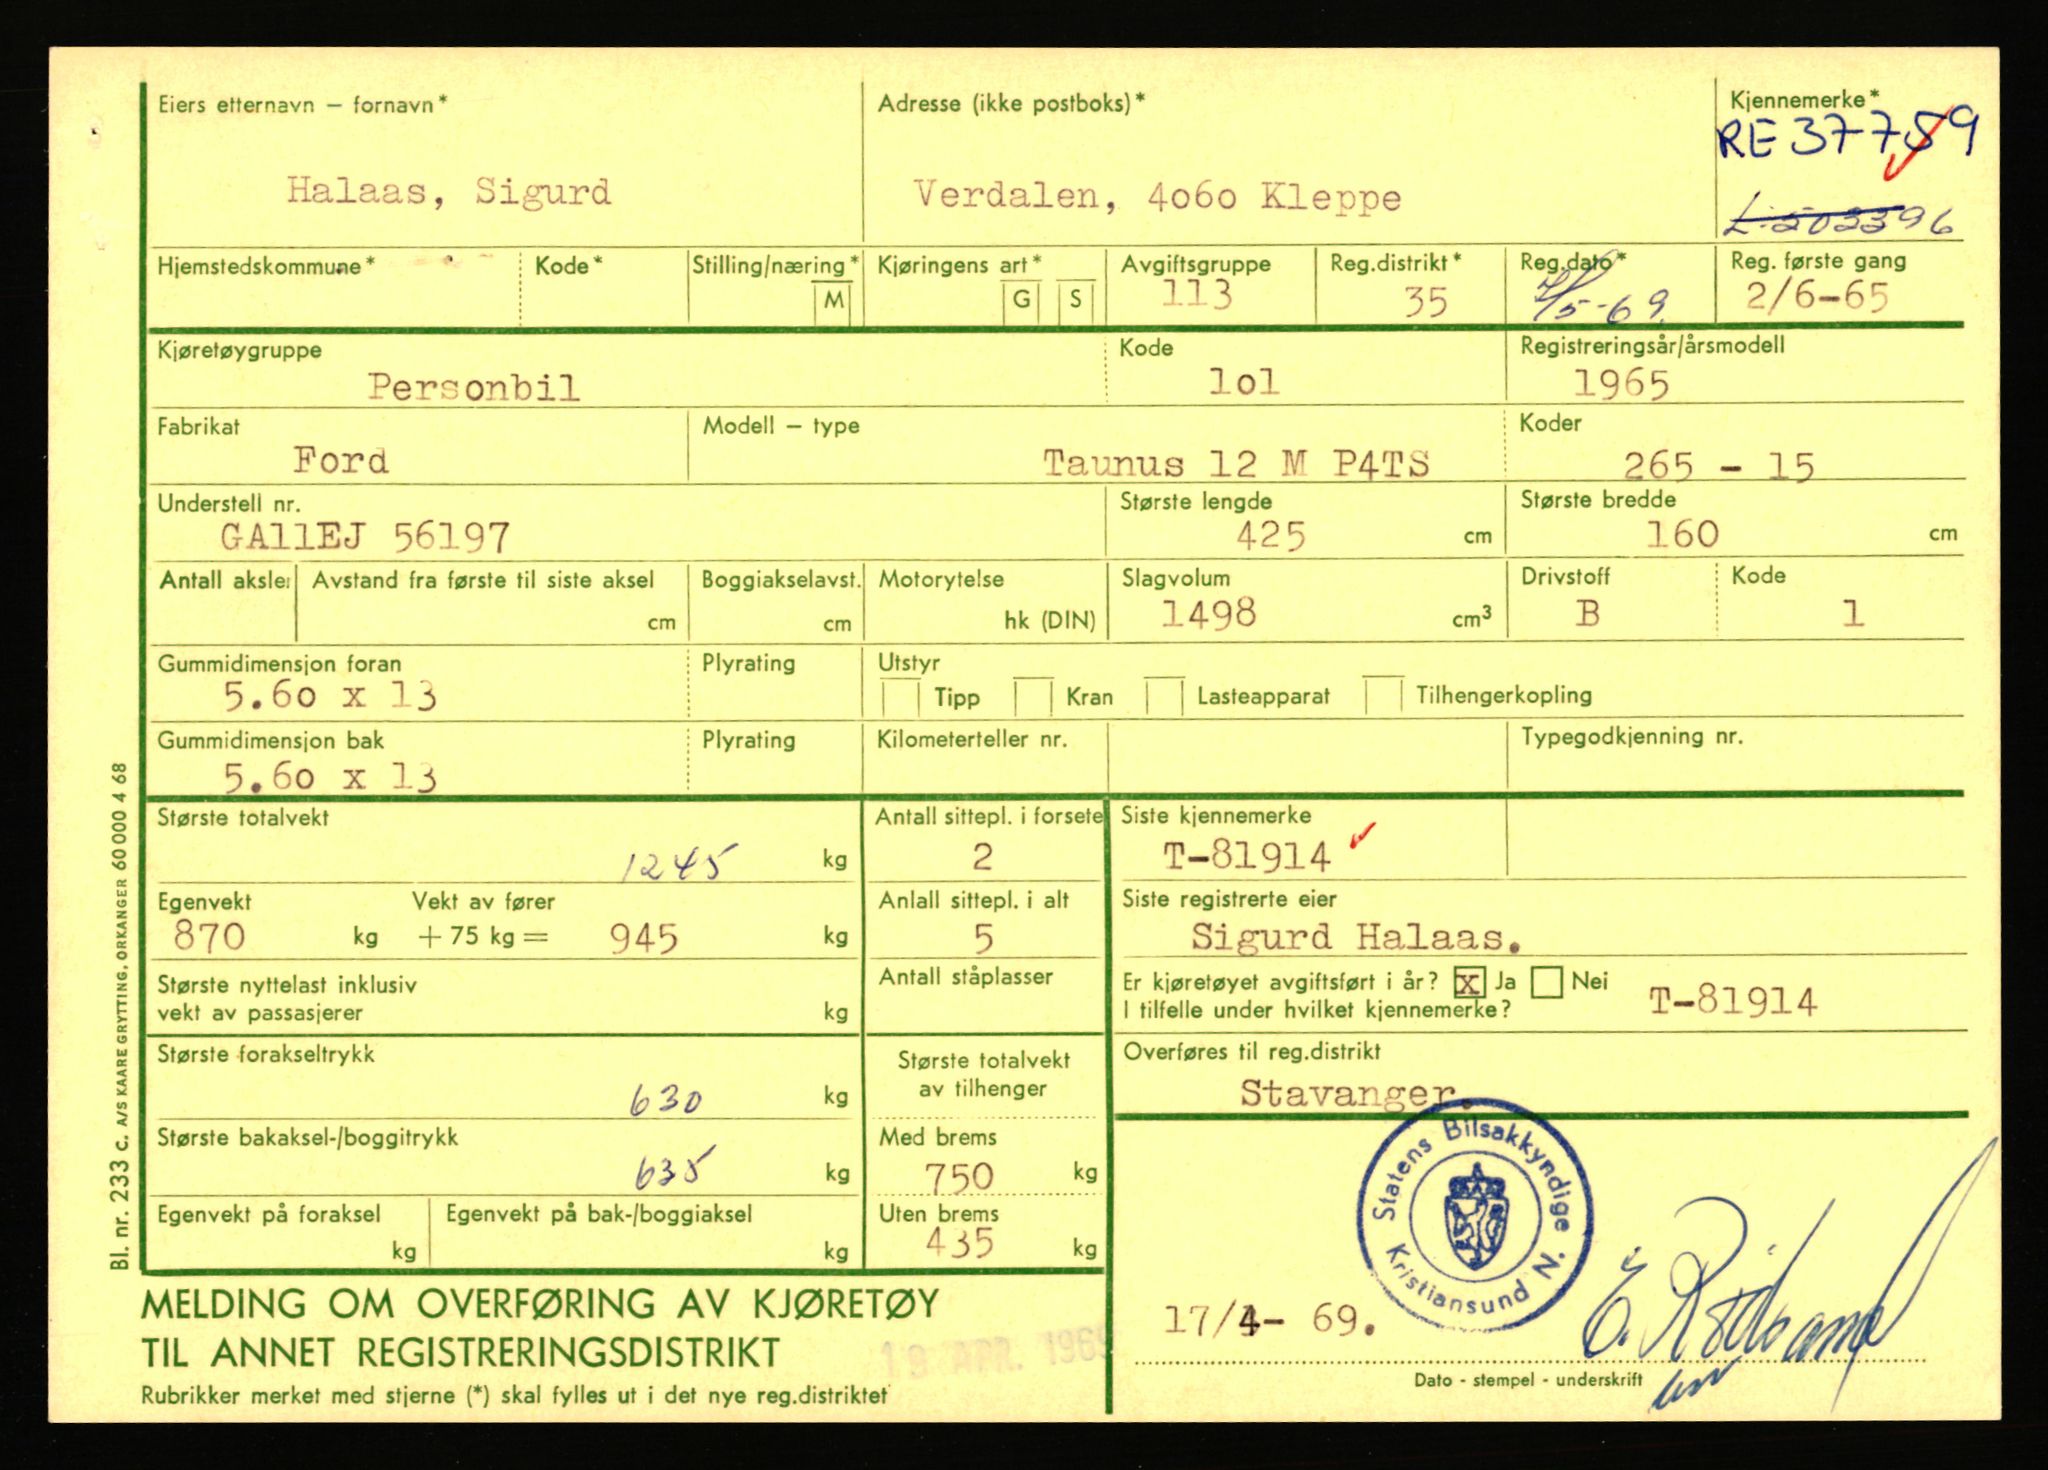 Eiers etternavn – fornavn*
Halaas, Sigurd
Adresse (ikke postboks)*
Verdalen, 4o6o Kleppe
Kjennemerke*
RE 37759
Hjemstedskommune*
Kode*
Stilling/næring*
M
Kjøringens art*
G S
Avgiftsgruppe
113
Reg.distrikt*
35
Reg.dato*
Reg. første gang
2/6-65
Kjøretøygruppe
Personbil
Kode
lol
Registreringsår/årsmodell
1965
Fabrikat
Ford
Modell – type
Taunus 12 M P4TS
Koder
265 - 15
Understell nr.
GAllEJ 56197
Største lengde
425 cm
Største bredde
160 cm
Antall aksler
Avstand fra første til siste aksel
cm
Boggiakselavst.
cm
Motorytelse
hk (DIN)
Slagvolum
1498 cm3
Drivstoff
B
Kode
1
Gummidimensjon foran
5.6o x 13
Plyrating
Utstyr
Tipp Kran Lasteapparat Tilhengerkopling
Gummidimensjon bak
5.6o x 13
Plyrating
Kilometerteller nr.
Typegodkjenning nr.
Største totalvekt
1245 kg
Antall sittepl. i forsete
2
Siste kjennemerke
T-81914
Egenvekt
870 kg
Vekt av fører
+ 75 kg = 945 kg
Anlall sittepl. i alt
5
Siste registrerte eier
Sigurd Halaas.
Største nyttelast inklusiv
vekt av passasjerer
kg
Antall ståplasser
Er kjøretøyet avgiftsført i år? x Ja Nei
I tilfelle under hvilket kjennemerke?
T-81914
Største forakseltrykk
630 kg
Største totalvekt
av tilhenger
Overføres til reg.distrikt
Stavanger.
Største bakaksel-/boggitrykk
635 kg
Med brems
750 kg
Egenvekt på foraksel
kg
Egenvekt på bak-/boggiaksel
kg
Uten brems
435 kg
Statens Bilsakkyndige
Kristiansund N.
17/4- 69.
Dato - stempel - underskrift
MELDING OM OVERFØRING AV KJØRETØY
TIL ANNET REGISTRERINGSDISTRIKT
19 APR. 1969
Rubrikker merket med stjerne (*) skal fylles ut i det nye reg.distriktet
Bl. nr. 233 c. A/S KAARE GRYTTING, ORKANGER 60 000 4 68